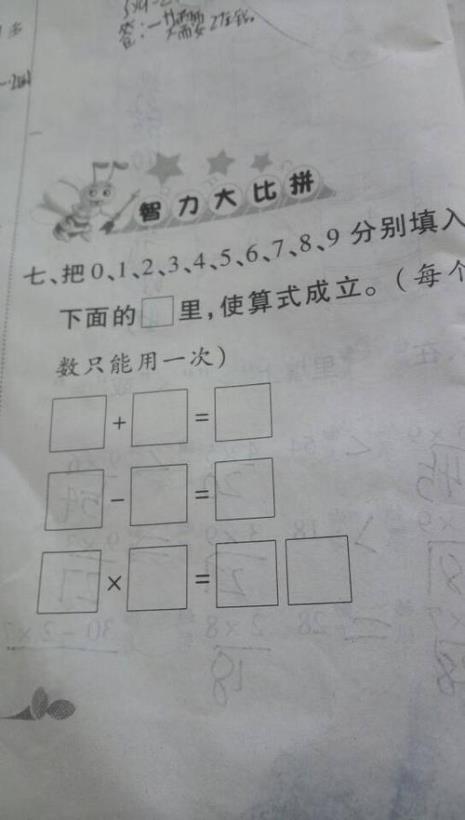 智力大比拼
七、把0、1、2、3、4、5、6、7、8、9分别填入
下面的□里,使算式成立。(每个
数只能用一次)
□+□=□
□-□=□
□×□=□□